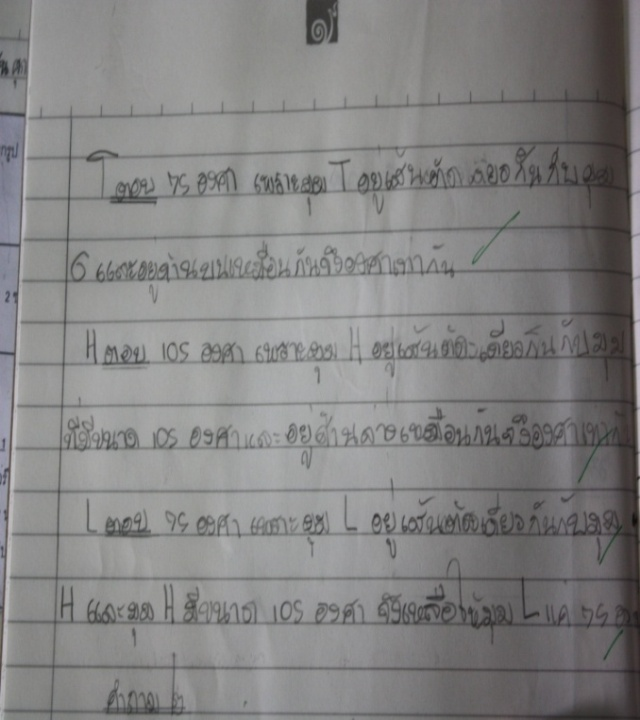 ๑
T ตอบ 75 องศา เพราะมุม T อยู่เส้นตัดเดียวกันกับมุม
G และอยู่ด้านบนเหมือนกันจึงองศาเท่ากัน
H ตอบ 105 องศา เพราะมุม H อยู่เส้นตัดเดียวกันกับมุม
ที่มีขนาด 105 องศาและอยู่ด้านล่างเหมือนกันจึงองศาเท่า
L ตอบ 75 องศา เพราะมุม L อยู่เส้นตัดเดียวกันกับมุม
H และมุม H มีขนาด 105 องศา จึงเหลือให้มุม L แค่ 75
คำถาม